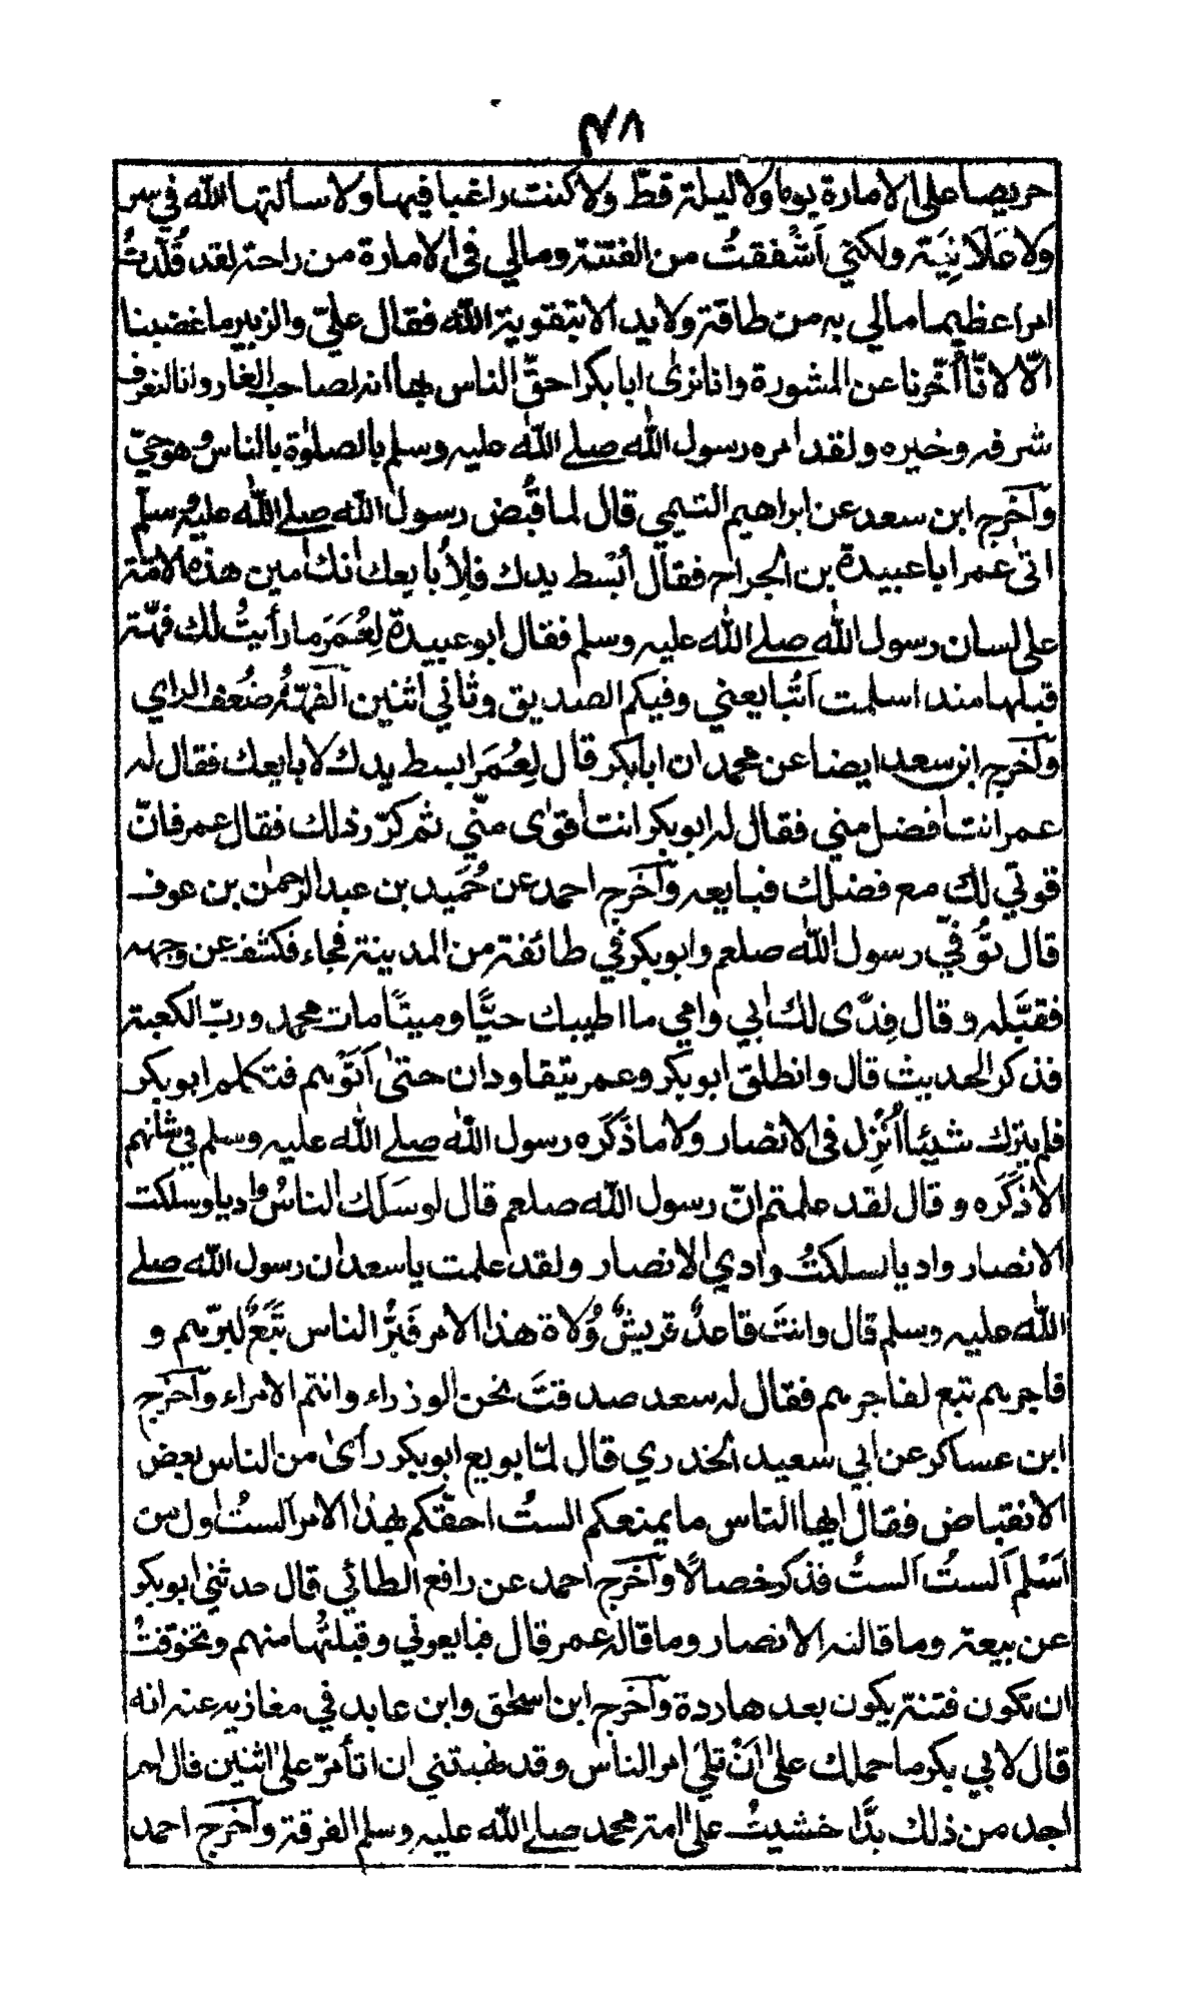 ۴۸
حريصا على الامارة يوما ولا ليلة قطّ ولا كنت راغبا فيها ولا سألتها الله في سر
ولا عَلَانِيَة ولكني اَشْفقتُ من الفتنة ومالي في الامارة من راحة لقد قُلّدتُ
امرا عظيما مالي به من طاقة ولا يد الا بتقوية الله فقال عليّ والزبير ما غضبنا
الّا لانّا اُخّرنا عن المشورة وانا نرى ابا بكر احقّ الناس بها انه لصاحب الغار وانا لنعرف
شرفه وخيره ولقد امره رسول الله صلے الله عليه وسلم بالصلوٰة بالناس وهو حيّ
وآخرج ابن سعد عن ابراهيم التيمي قال لما قُبض رسول الله صلے الله عليه وسلم
اتى عُمر ابا عبيدة بن الجراح فقال اُبْسط يدك فلِاُبايعك انك امين هذه الامّة
على لسان رسول الله صلے الله عليه وسلم فقال ابو عبيدة لِعُمَرَ ما رأيتُ لك فهّة
قبلها منذ اسلمت اَتُبايعني وفيكم الصديق وثاني اثنين الفهّة ضُعف الراي
وآخرج ابن سعد ايضا عن محمد ان ابا بكر قال لِعُمَر ابسط يدك لابايعك فقال له
عمر انت افضل مني فقال له ابو بكر انت اقوٰى منّي ثم كرّر ذلك فقال عمر فانّ
قوتي لك مع فضلك فبايعه وآخرج احمد عن حُمَيد بن عبد الرحمٰن بن عوف
قال تُوُفّي رسول الله صلعم وابو بكر في طائفة من المدينة فجاء فكشف عن وجهه
فقبَّله وقال فِدًى لك ابي وامي ما اطيبك حيًّا وميتًا مات محمد وربّ الكعبة
فذكر الحديث قال وانطلق ابو بكر وعمر يتقاودان حتى اَتَوْهم فتكلم ابو بكر
فلم يترك شيئا اُنْزِل في الانصار ولا ما ذَكَره رسول الله صلے الله عليه وسلم في شانهم
الا ذَكَره وقال لقد علمتم انّ رسول الله صلعم قال لو سَلَك الناسُ واديا وسلكت
الانصار واديا لسلكتُ وادي الانصار ولقد علمت يا سعد ان رسول الله صلے
الله عليه وسلم قال وانتَ قاعدٌ قريشٌ وُلاة هذا الامر فَبَرُّ الناس تَبَعٌ لبرّهم و
فاجرهم تبع لفاجرهم فقال له سعد صدقتَ نحن الوزراء وانتم الامراء وآخرج
ابن عساكر عن ابي سعيد الخدري قال لمّا بويع ابو بكر رأىٰ من الناس بعض
الانقباض فقال ايها الناس ما يمنعكم الستُ احقّكم بهذا الامر الستُ اول من
اَسْلم اَلستُ اَلستُ فذكر خصالًا وآخرج احمد عن رافع الطائي قال حدثني ابو بكر
عن بيعته وما قالته الانصار وما قاله عمر قال فبايعوني وقبلتُها منهم وتخوّفتُ
ان تكون فتنة يكون بعدها ردة وآخرج ابن اسحٰق وابن عابد في مغازيه عنه انه
قال لابي بكر ما حملك على اَنْ تلي امر الناس وقد نهيتني ان اتأمّر على اثنين قال لم
اجد من ذلك بدًّا خشيتُ على امة محمد صلے الله عليه وسلم الفرقة وآخرج احمد